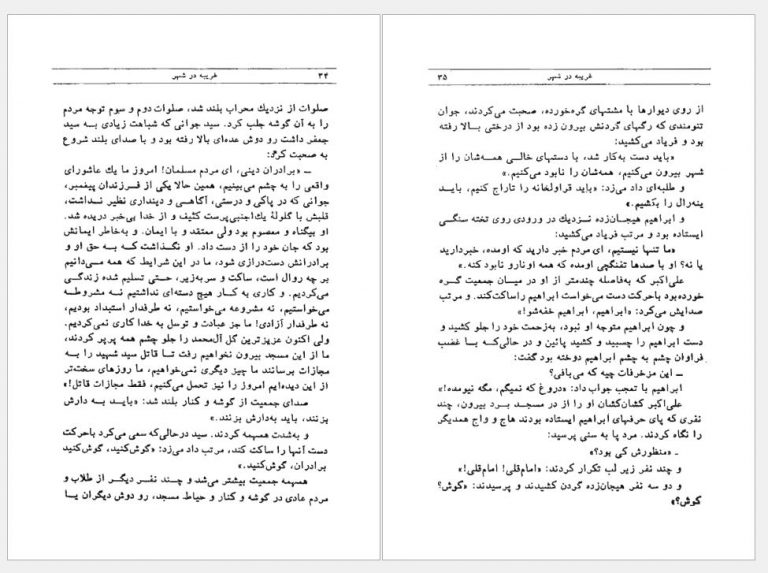 ۳۴ غریبه در شهر
صلوات از نزدیك محراب بلند شد، صلوات دوم و سوم توجه مردم
را به آن گوشه جلب کرد. سید جوانی که شباهت زیادی بـه سید
جعفر داشت رو دوش عده‌ای بالا رفته بود و با صدای بلند شروع
به صحبت کرد:
ــ «برادران دینی، ای مردم مسلمان! امروز ما یك عاشورای
واقعی را به چشم می‌بینیم، همین حالا یکی از فـرزندان پیغمبر،
جوانی که در پاکی و درستی، آگاهـی و دینداری نظیر نـداشت،
قلبش با گلولهٔ یك‌اجنبی‌پرست کثیف و از خدا بی‌خبر دریده شد.
او بیگناه و معصوم بود ولی معتقد و با ایمان. و به‌خاطر ایمانش
بود که جان خود را از دست داد. او نگذاشت کـه بـه حق او و
برادرانش دست‌درازی شود، ما در این شرایط که همه مـی‌دانیم
بر چه روال است، ساکت و سربه‌زیر، حتـی تسلیم شده زندگـی
می‌کردیم. و کاری به کـار هیچ دسته‌ای نداشتیم نـه مشروطـه
می‌خواستیم، نه مشروعه می‌خواستیم، نه طرفدار استبداد بودیم،
نه طرفدار آزادی! ما جز عبادت و توسل به خدا کاری نمی‌کردیم.
ولی اکنون عزیزترین گل آل‌محمد را جلو چشم همه پرپر کردند،
ما از این مسجد بیرون نخواهیم رفت تـا قاتل سید شهید را بـه
مجازات برسانند ما چیز دیگری نمی‌خواهیم، ما روزهای سخت‌تر
از این دیده‌ایم امروز را نیز تحمل می‌کنیم، فقط مجازات قاتل!»
صدای جمعیت از گوشه و کنار بلند شد: «بایـد بـه دارش
بزنند، باید به‌دارش بزنند.»
و به‌شدت همهمه کردند. سید درحالی‌که سعی می‌کرد باحرکت
دست آنها را ساکت کند، مرتب داد می‌زد: «گوش‌کنید، گوش‌کنید
برادران، گوش‌کنید.»
همهمه جمعیت بیشتر می‌شد و چنـد نفـر دیگـر از طلاب و
مردم عادی در گوشه و کنار و حیاط مسجد، رو دوش دیگران یـا
۳۵ غریبه در شهر
از روی دیوارها با مشتهای گره‌خورده، صحبت می‌کردند، جوان
تنومندی که رگهای گردنش بیرون زده بود از درختی بـالا رفته
بود و فریاد می‌کشید:
«باید دست به‌کار شد، با دستهای خالـی همه‌شان را از
شهر بیرون می‌کنیم، همه‌شان را نابود می‌کنیم.»
و طلبه‌ای داد می‌زد: «باید قراولخانه را تاراج کنیم، بایـد
ینه‌رال را بکشیم.»
و ابراهیم هیجان‌زده نـزدیك در ورودی روی تخته سنگـی
ایستاده بود و مرتب فریاد می‌کشید:
«ما تنها نیستیم، ای مردم خبر دارید که اومده، خبردارید
یا نه؟ او با صدها تفنگچی اومده که همه اونارو نابود کنه.»
علی‌اکبر که به‌فاصله چندمتر از او در میـان جمعیت گـره
خورده‌بود باحرکت دست می‌خواست ابراهیم راساکت‌کند. و مرتب
صدایش می‌کرد: «ابراهیم، ابراهیم خفه‌شو!»
و چون ابراهیم متوجه او نبود، به‌زحمت خود را جلو کشید و
دست ابراهیم را چسبید و کشید پائین و در حالی‌که بـا غضب
فراوان چشم به چشم ابراهیم دوخته بود گفت:
ــ این مزخرفات چیه که می‌بافی؟
ابراهیم با تعجب جواب داد: «دروغ که نمیگم، مگه نیومده!»
علی‌اکبر کشان‌کشان او را از در مسجـد بـرد بیرون، چند
نفری که پای حرفهای ابراهیم ایستاده بودند هاج و واج همدیگر
را نگاه کردند. مرد پا به سنی پرسید:
ـ «منظورش کی بود؟»
و چند نفر زیر لب تکرار کردند: «امام‌قلی! امام‌قلی!»
و دو سه نفر هیجان‌زده گردن کشیدند و پرسیدند: «کوش؟
کوش؟»